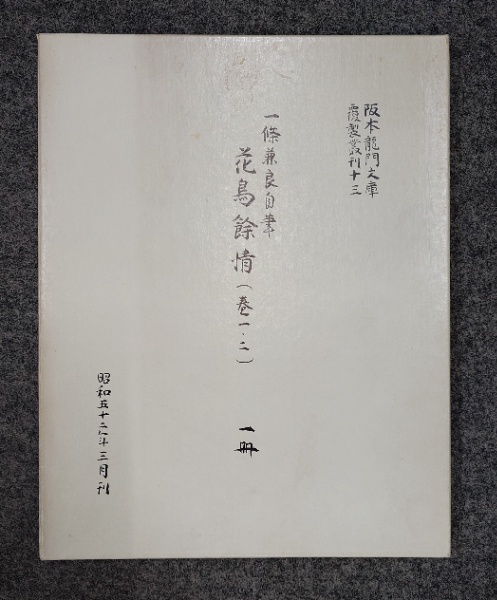 阪本龍門文庫
覆製叢刊十三
一條兼良自筆
花鳥餘情(巻一・二)
一冊
昭和五十二年三月刊